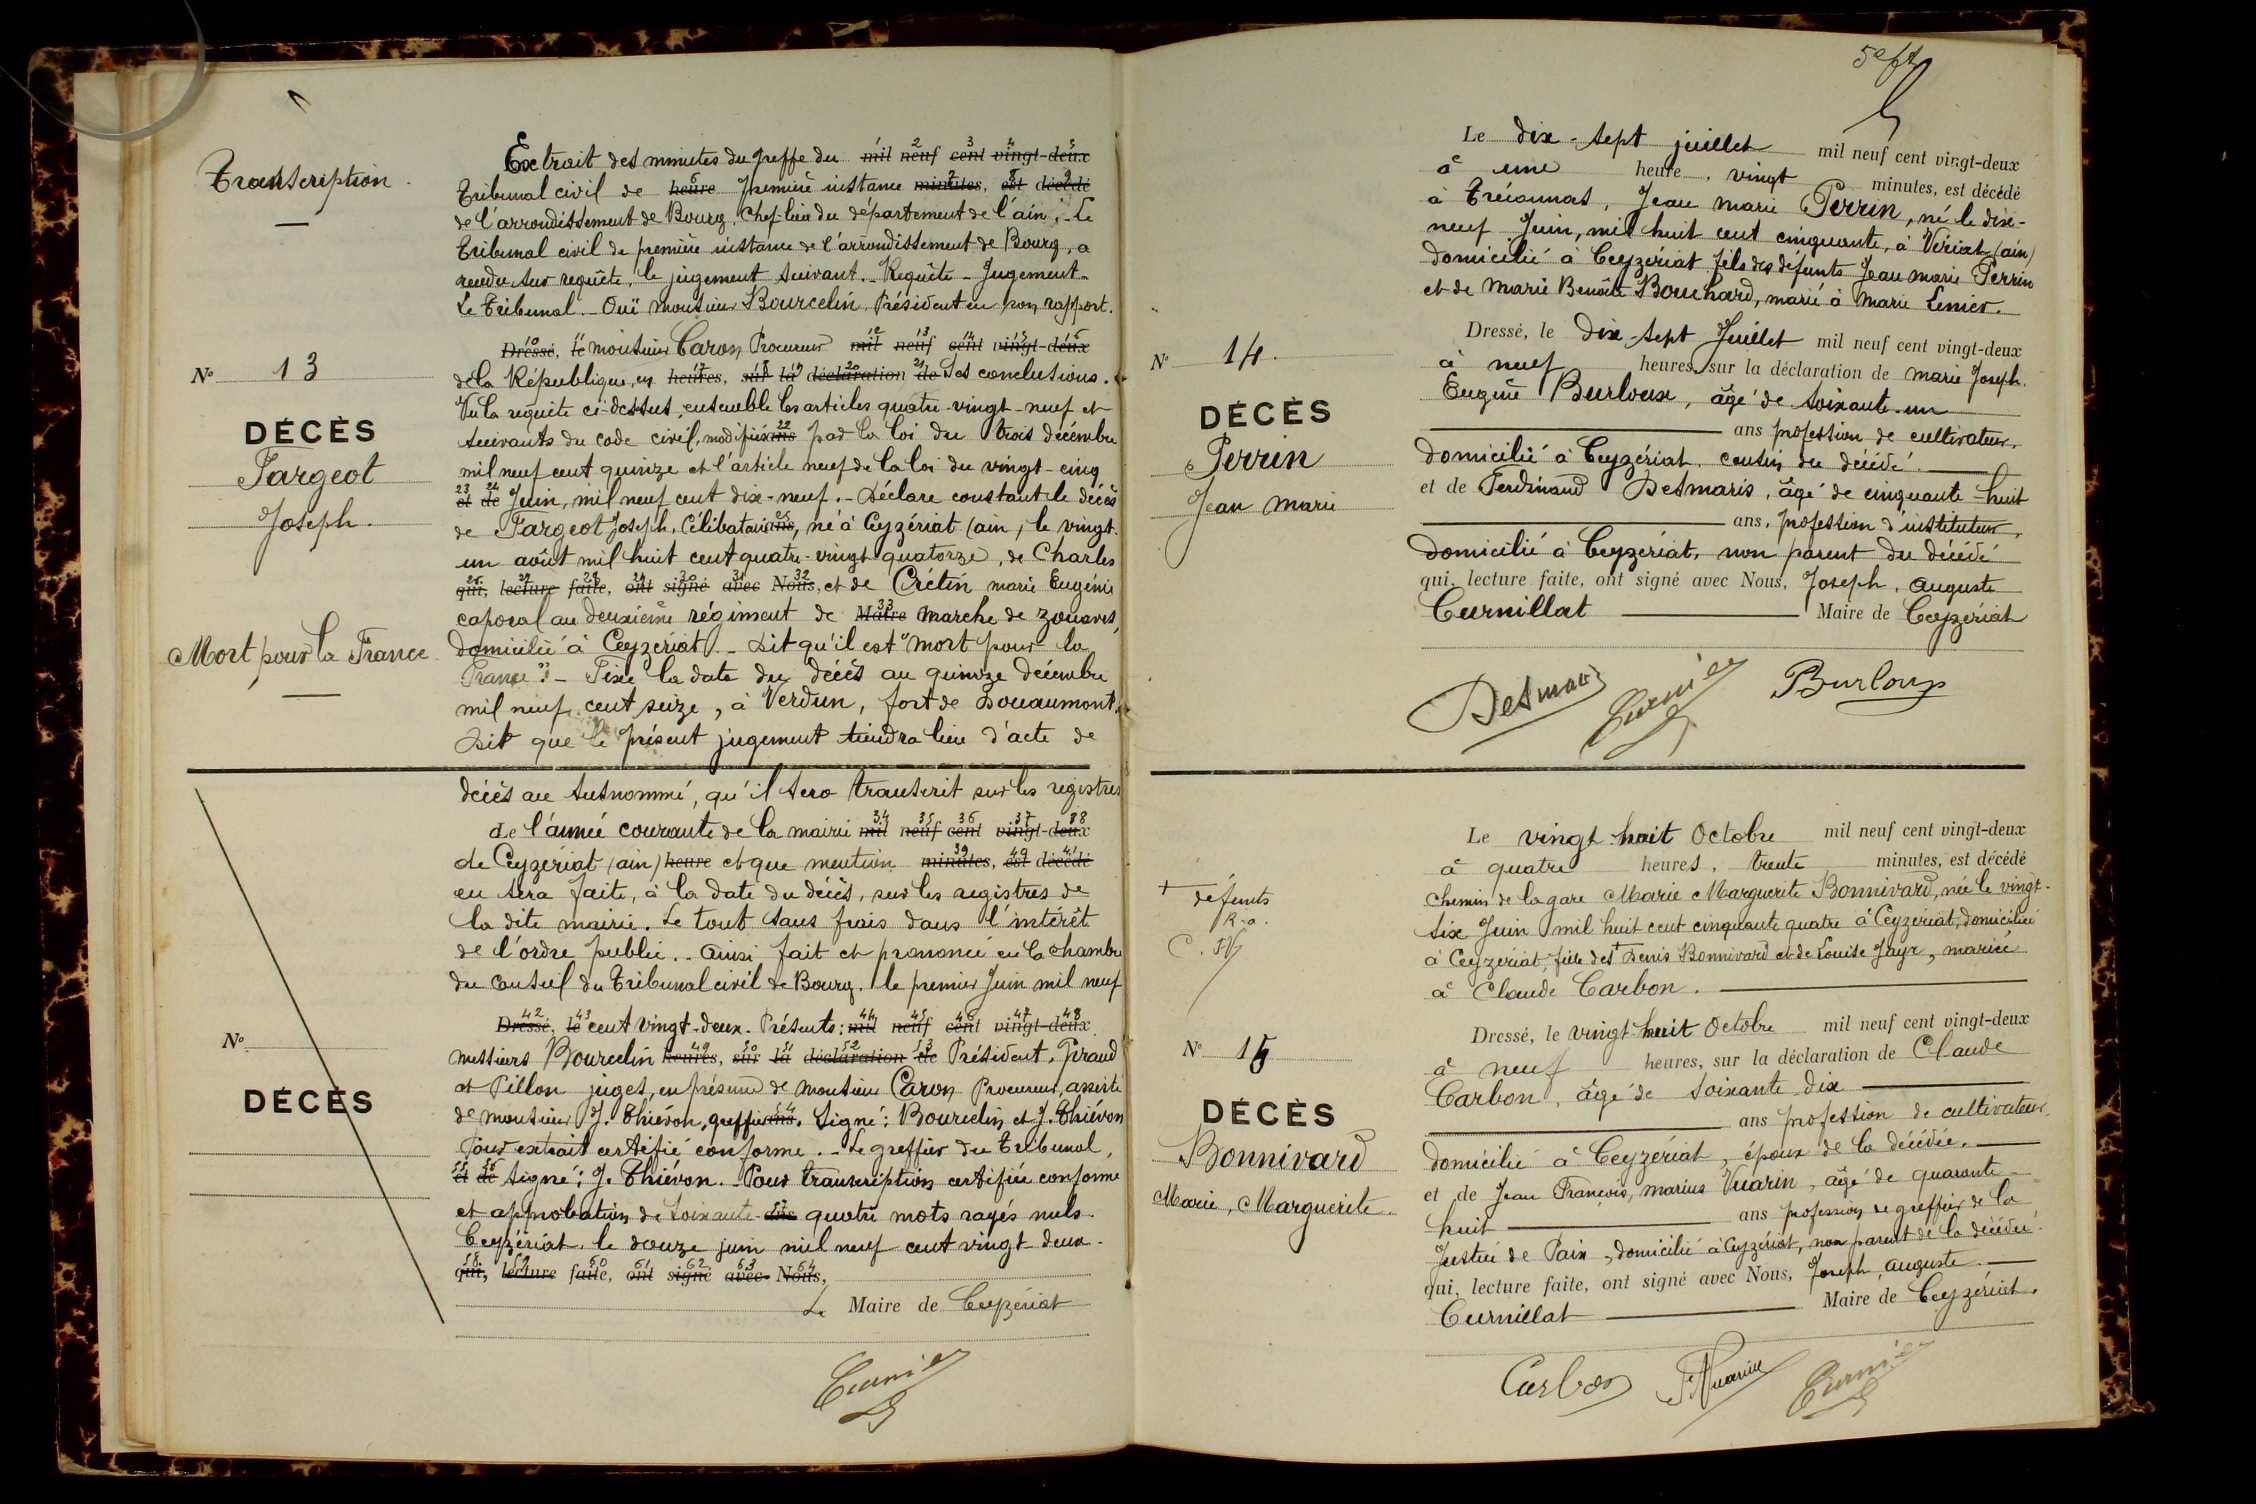 Transcription.
Extrait des minutes du greffe du mil neuf cent vingt-deux
Tribunal civil de heure première instance minutes, est décédé
de l'arrondissement de Bourg, Chef-lieu du département de l'ain. - Le
Tribunal civil de première instance de l'arrondissement de Bourg, a
rendu sur requête, le jugement suivant. - Requête - Jugement -
Le Tribunal. - Ouï Monsieur Bourcelin, Président en son rapport.
N° 13
DÉCÈS
Fargeot
Joseph.
Mort pour la France
Dressé, le monsieur Caron Procureur mil neuf cent vingt-deux
de la République, en heures, sur la déclaration de ses conclusions.
Vu la requête ci-dessus, ensemble les articles quatre-vingt-neuf et
suivants du code civil, modifiés ans par la loi du trois décembre
mil neuf cent quinze et l'article neuf de la loi du vingt-cinq
et de Juin, mil neuf cent dix-neuf. - Déclare constant le décès
de Fargeot Joseph, Célibataire ans, né à Ceyzériat (ain), le vingt-
un août mil huit cent quatre-vingt quatorze, de Charles
qui, lecture faite, ont signé avec Nous, et de Crétin marie Eugénie
caporal au deuxième régiment de Maire marche de zouaves,
domicilié à Ceyzériat. - Dit qu'il est "mort pour la
France". - Fixe la date du décès au quinze décembre
mil neuf cent seize, à Verdun, fort de Douaumont.
Dit que le présent jugement tiendra lieu d'acte de
décès au susnommé, qu'il sera transcrit sur les registres
de l'année courante de la mairie mil neuf cent vingt-deux
de Ceyzeriat (ain) heure et que mention minutes, est décédé
en sera faite, à la date du décès, sur les registres de
la dite mairie. Le tout sans frais dans l'intérêt
de l'ordre public. - Ainsi fait et prononcé en la chambre
du conseil du Tribunal civil de Bourg, le premier Juin mil neuf
N°
DÉCÈS
Dressé, le cent vingt-deux. Présents: mil neuf cent vingt-deux
messieurs Bourcelin heures, sur la déclaration de Président, Giraud
et Pillon juges, en présence de monsieur Caron Procureur, assisté
de monsieur J. Thiévon, greffier ans. Signé: Bourcelin et J. Thiévon
Pour extrait certifié conforme. - Le greffier du Tribunal,
et de signé: J. Thiévon. - Pour transcription certifiée conforme
et approbation de soixante-quatre mots rayés nuls.
Ceyzériat, le douze juin mil neuf cent vingt-deux.
qui, lecture faite, ont signé avec Nous,
Le Maire de Ceyzériat
Le dix-sept juillet mil neuf cent vingt-deux
à une heure, vingt minutes, est décédé
à Tréconnas, Jean marie Perrin, né le dix-
neuf Juin, mil huit cent cinquante, à Vériat (ain)
domicilié à Ceyzériat fils des défunts Jean marie Perrin
et de Marie Benoîte Bouchard, marié à Marie Lenier.
N° 14.
DÉCÈS
Perrin
Jean Marie
Dressé, le dix-sept Juillet mil neuf cent vingt-deux
à neuf heures, sur la déclaration de marie Joseph.
Eugène Burloux, âgé de soixante-un
ans profession de cultivateur,
domicilié à Ceyzériat, cousin du décédé.
et de Ferdinand Desmaris, âgé de cinquante-huit
ans, profession d'instituteur,
domicilié à Ceyzériat, non parent du décédé
qui, lecture faite, ont signé avec Nous, Joseph, Auguste
Curnillat Maire de Ceyzériat
Desmaris
Burloux
Le vingt-huit Octobre mil neuf cent vingt-deux
à quatre heures, trente minutes, est décédé
chemin de la gare Marie Marguerite Bonnivard, née le vingt-
six Juin mil huit cent cinquante quatre à Ceyzériat, domiciliée
à Ceyzériat, fille des + Denis Bonnivard et de Louise Jayr, mariée
à Claude Carbon.
+ défunts
N° 15
DÉCÈS
Bonnivard
Marie, Marguerite.
Dressé, le vingt-huit Octobre mil neuf cent vingt-deux
à neuf heures, sur la déclaration de Claude
Carbon, âgé de soixante-dix
ans profession de cultivateur,
domicilié à Ceyzériat, époux de la décédée,
et de Jean François, marius Vuarin, âgé de quarante-
huit ans profession de greffier de la
Justice de Paix, domicilié à Ceyzériat, non parent de la décédée.
qui, lecture faite, ont signé avec Nous, Joseph, auguste
Curnillat Maire de Ceyzériat.
Carbon